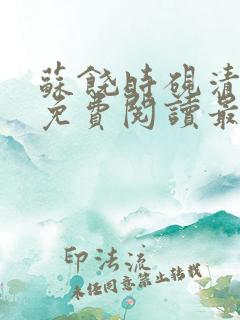 蘇饒時硯清
免費閱讀最
印法流
未经同意禁止转载